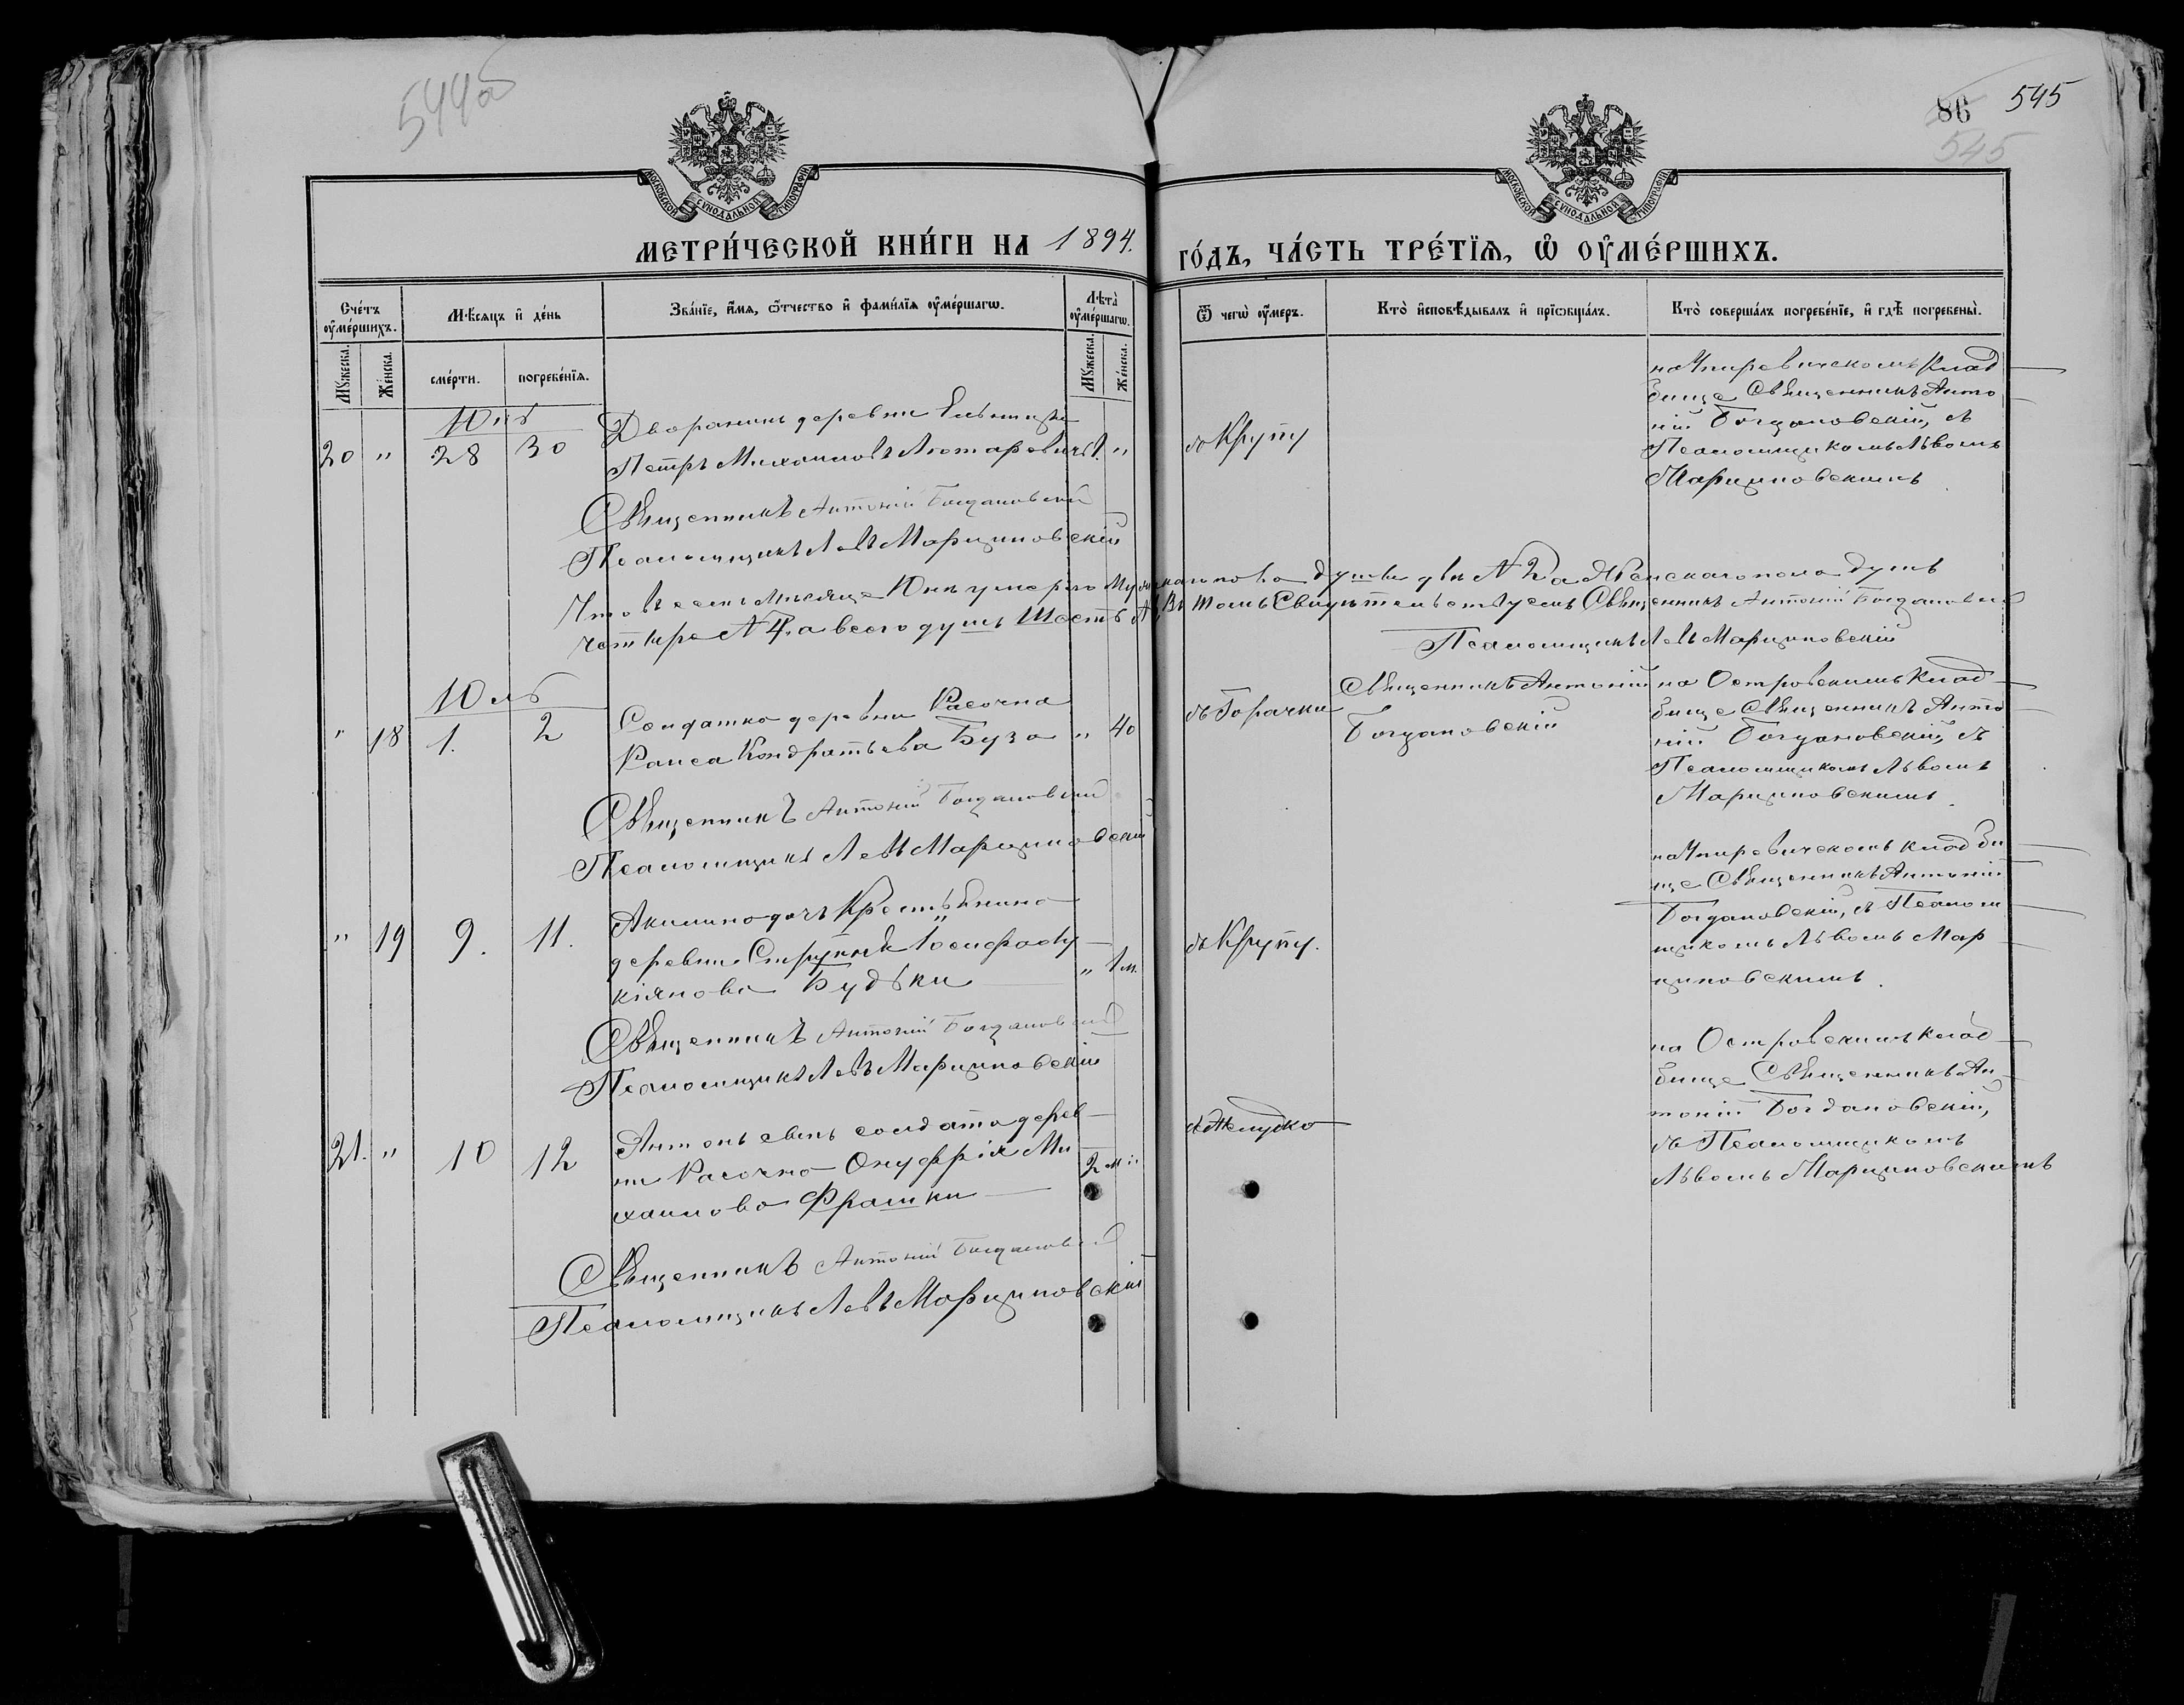 544об
86 545
545
МОСКОВСКОЙ СѴНОДАЛЬНОЙ ТИПОГРАФІИ
МОСКОВСКОЙ СѴНОДАЛЬНОЙ ТИПОГРАФІИ
МЕТРИ́ЧЕСКОЙ КНИ́ГИ НА 1894. ГО́ДЪ, ЧА́СТЬ ТРЕ́ТЇѦ, Ѡ҆ ОУ҆МЕ́РШИХЪ.
Сче́тъ оу҆ме́ршихъ.
Мꙋ́жеска.
Же́нска.
Мѣ́сяцъ и҆ де́нь
сме́рти.
погребе́нїѧ.
Зва́нїе, и҆́мѧ, ѻ҆́тчество и҆ фами́лїѧ оу҆ме́ршагѡ.
Лѣ́та оу҆ме́ршагѡ.
Мꙋ́жеска.
Же́нска.
Ѿ чегѡ̀ оу҆́меръ.
Кто̀ и҆сповѣ́дывалъ и҆ прїѡбща́лъ.
Кто̀ соверша́лъ погребе́нїе, и҆ гдѣ̀ погребены̀.
Юнь
20 " 28 30
Дворянинъ деревни
Петръ Михаиловъ Лютаревичъ 1. "
въ Крупу
на Кладбище Священникъ Антоній Богдановскій, съ
Псаломщикомъ Львомъ
Марциновскимъ
Священникъ Антоній Богдановскій
Псаломщикъ Левъ Марциновскій
Что въ семъ мѣсяце Юнѣ умерло Мужскаго пола души двѣ № 2 а Женскаго пола душъ
четыре № 4, а всего душъ Шесть № 6, Въ томъ Свидѣтельствуемъ Священникъ Антоній Богдановскій
Псаломщикъ Левъ Марциновскій
Юль
" 18 1. 2
Солдатка деревни Расочна
Раиса Кондратьева Буза " 40
въ Горачки
Священникъ Антоній
Богдановскій
на Островскимъ Клад
бище Священникъ Анто
ній Богдановскій, съ
Псаломщикомъ Львомъ
Марциновскимъ.
Священникъ Антоній Богдановскій
Псаломщикъ Левъ Марциновскій
" 19 9. 11.
Акилина дочь Крестьянина
деревни Іосифа Лу
кіянова Будьки " 1 м.
въ Крупу.
на кладби
ще Священникъ Антоній
Богдановскій, съ Псалом
щикомъ Львомъ Мар
циновскимъ.
Священникъ Антоній Богдановскій
Псаломщикъ Левъ Марциновскій
21. " 10 12
Антонъ сынъ солдата дерев
ни Расочна Онуфрія Ми
хаилова Фрашки 2 м "
въ Желудка
на Островскимъ клад
бище Священникъ Ан
тоній Богдановскій,
съ Псаломщикомъ
Львомъ Марциновскимъ
Священникъ Антоній Богдановскій
Псаломщикъ Левъ Марциновскій